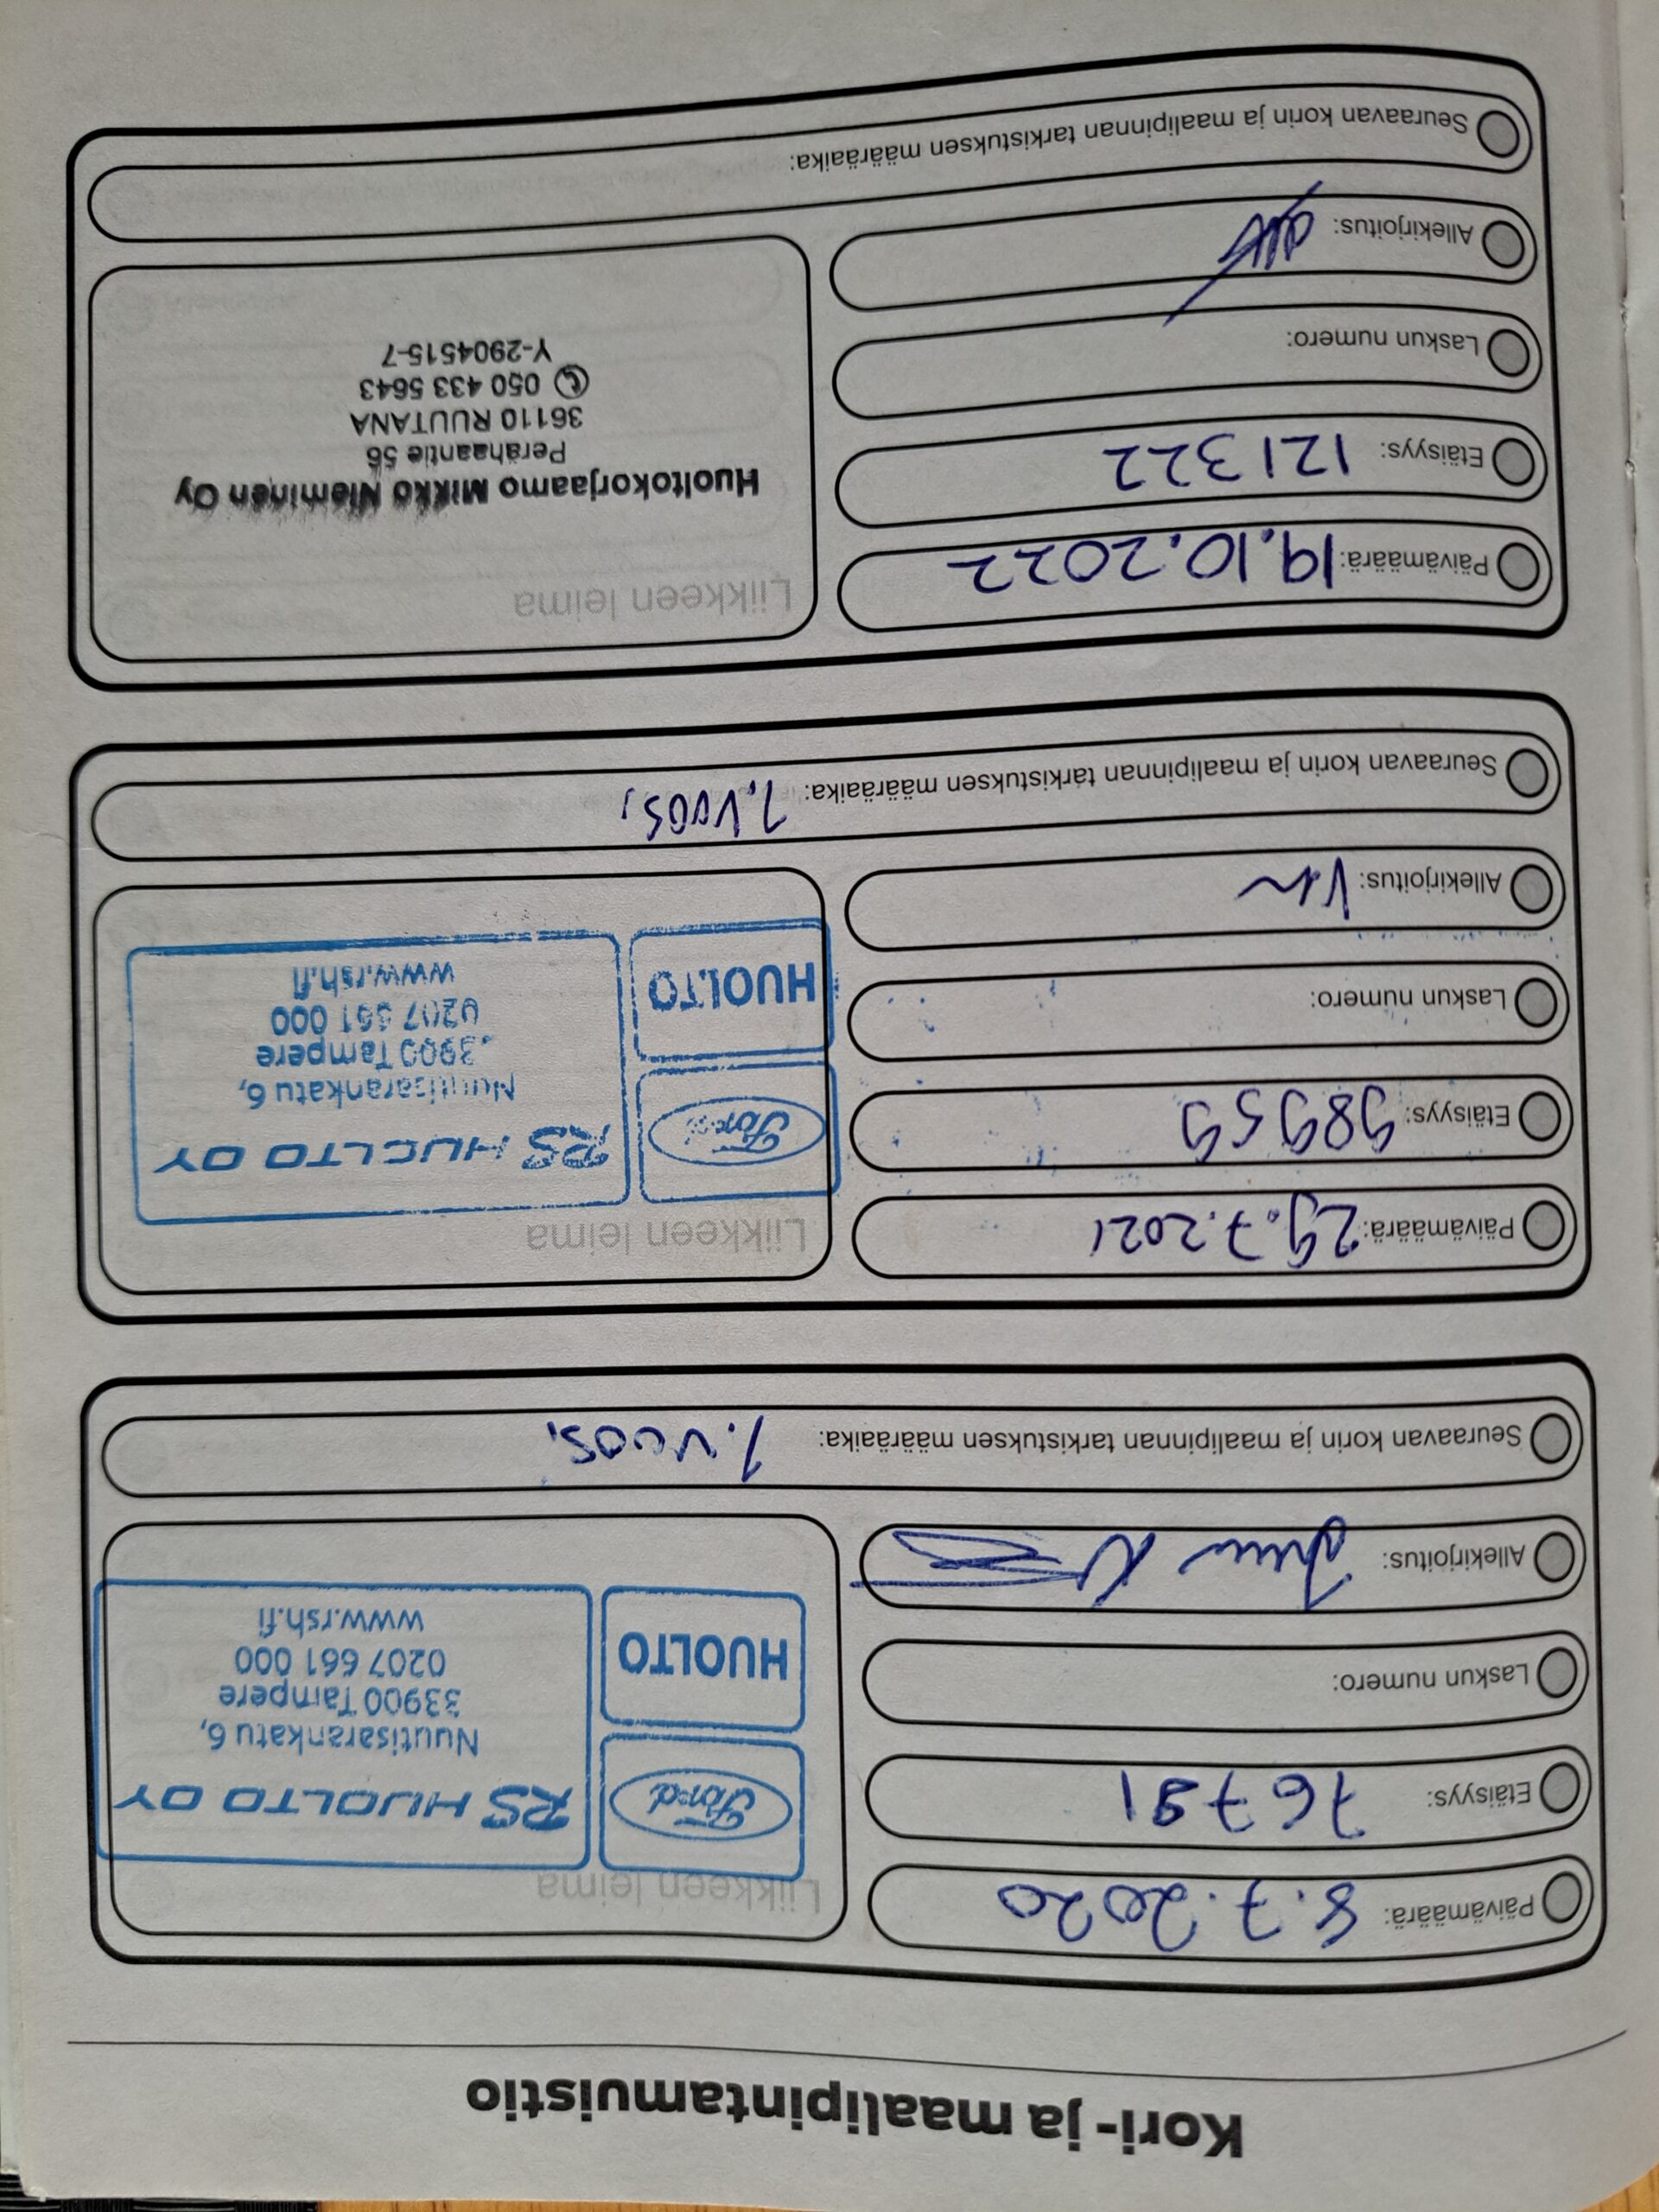 Kori- ja maalipintamuistio
Päivämäärä: 8.7.2020
Etäisyys: 76791
Laskun numero:
Allekirjoitus:
Liikkeen leima
Ford
HUOLTO
RS HUOLTO OY
Nuutisarankatu 6,
33900 Tampere
0207 661 000
www.rsh.fi
Seuraavan korin ja maalipinnan tarkistuksen määräaika: 1.VUOS,
Päivämäärä: 29.7.2021
Etäisyys: 98959
Laskun numero:
Allekirjoitus:
Liikkeen leima
Ford
HUOLTO
RS HUOLTO OY
Nuutisarankatu 6,
3900 Tampere
0207 661 000
www.rsh.fi
Seuraavan korin ja maalipinnan tarkistuksen määräaika: 1.VUOS,
Päivämäärä: 19.10.2022
Etäisyys: 121322
Laskun numero:
Allekirjoitus:
Liikkeen leima
Huoltokorjaamo Mikko Nieminen Oy
Perähaantie 56
36110 RUUTANA
050 433 5643
Y-2904515-7
Seuraavan korin ja maalipinnan tarkistuksen määräaika: